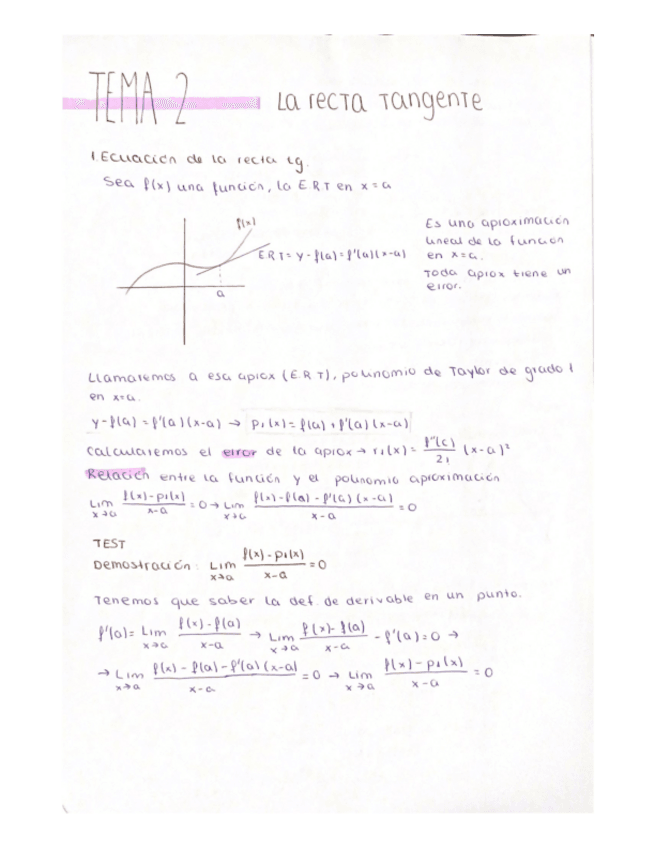 TEMA 2 La recta Tangente
1. Ecuación de la recta tg.
Sea f(x) una función, la E R T en x = a
f(x)
E R T = y - f(a) = f'(a)(x-a)
a
Es una aproximación
lineal de la función
en x = a.
Toda aprox tiene un
error.
Llamaremos a esa aprox (E R T), polinomio de Taylor de grado 1
en x=a.
y - f(a) = f'(a)(x-a) → P₁(x) = f(a) + f'(a)(x-a)
Calcularemos el error de la aprox → r₁(x) = f''(c)/2! (x-a)²
Relación entre la función y el polinomio aproximación
Lim x→a (f(x) - p₁(x))/(x-a) = 0 → Lim x→a (f(x) - f(a) - f'(a)(x-a))/(x-a) = 0
TEST
Demostración: Lim x→a (f(x) - p₁(x))/(x-a) = 0
Tenemos que saber la def. de derivable en un punto.
f'(a) = Lim x→a (f(x) - f(a))/(x-a) → Lim x→a (f(x) - f(a))/(x-a) - f'(a) = 0 →
→ Lim x→a (f(x) - f(a) - f'(a)(x-a))/(x-a) = 0 → Lim x→a (f(x) - p₁(x))/(x-a) = 0